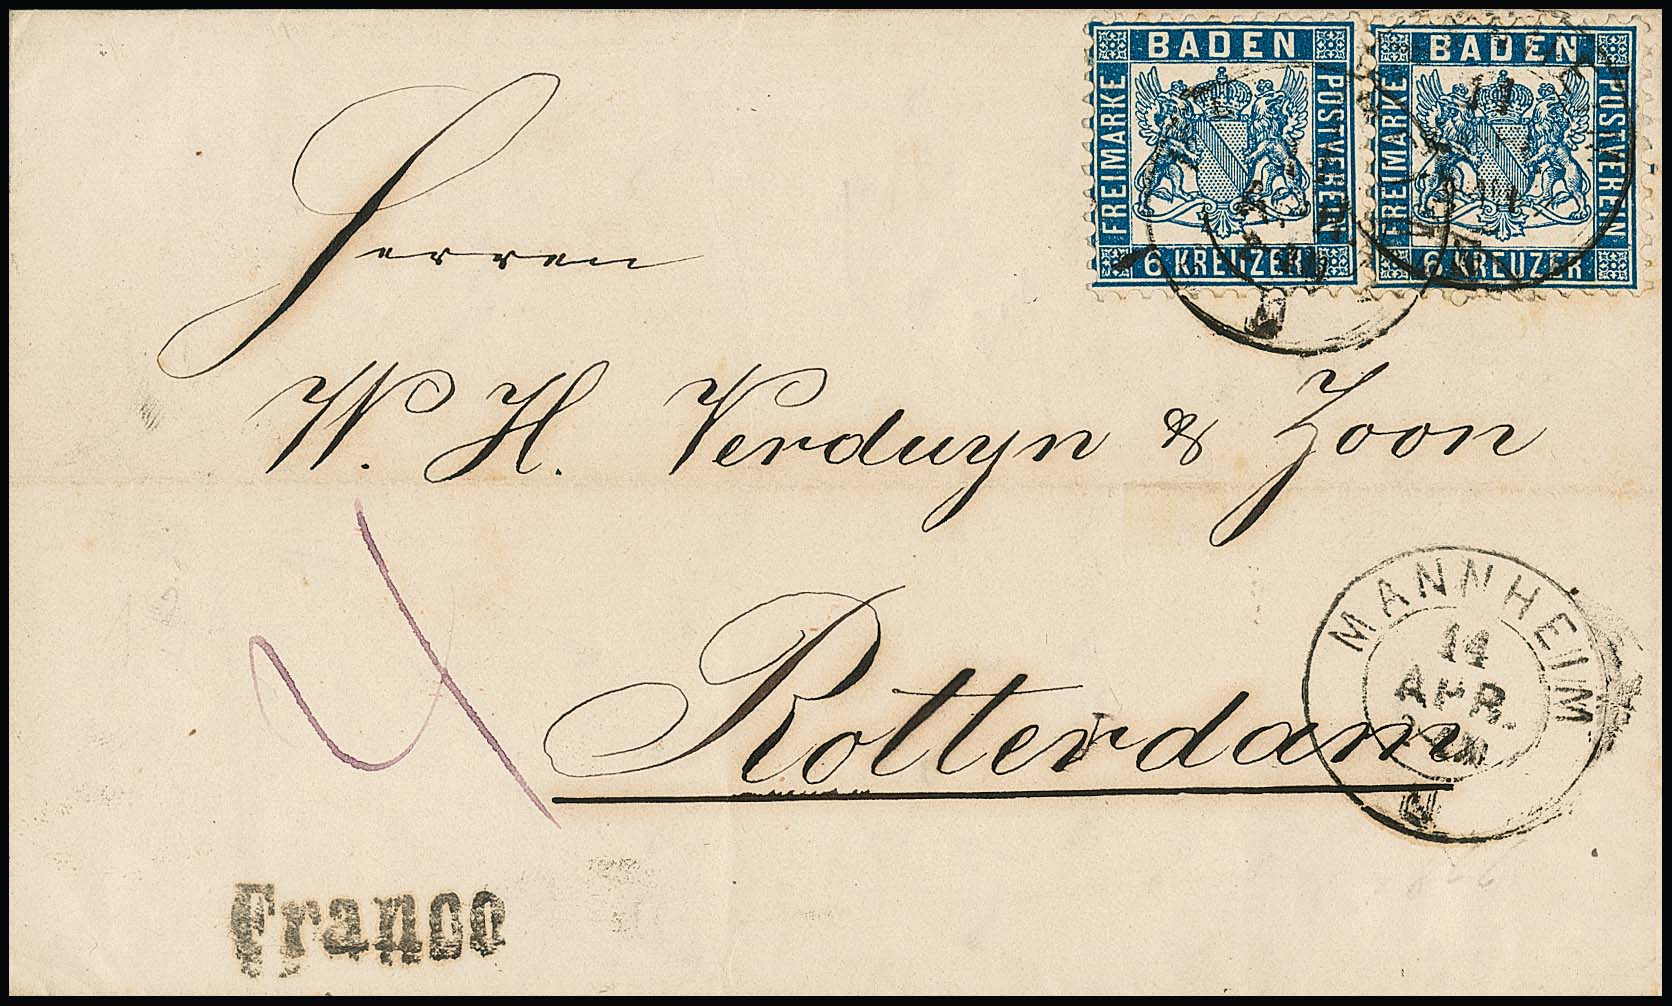 BADEN
FREIMARKE
POSTVEREIN
6 KREUZER
BADEN
FREIMARKE
POSTVEREIN
6 KREUZER
Herren
W. H. Verduyn & Zoon
Rotterdam
MANNHEIM
14
APR.
Franco